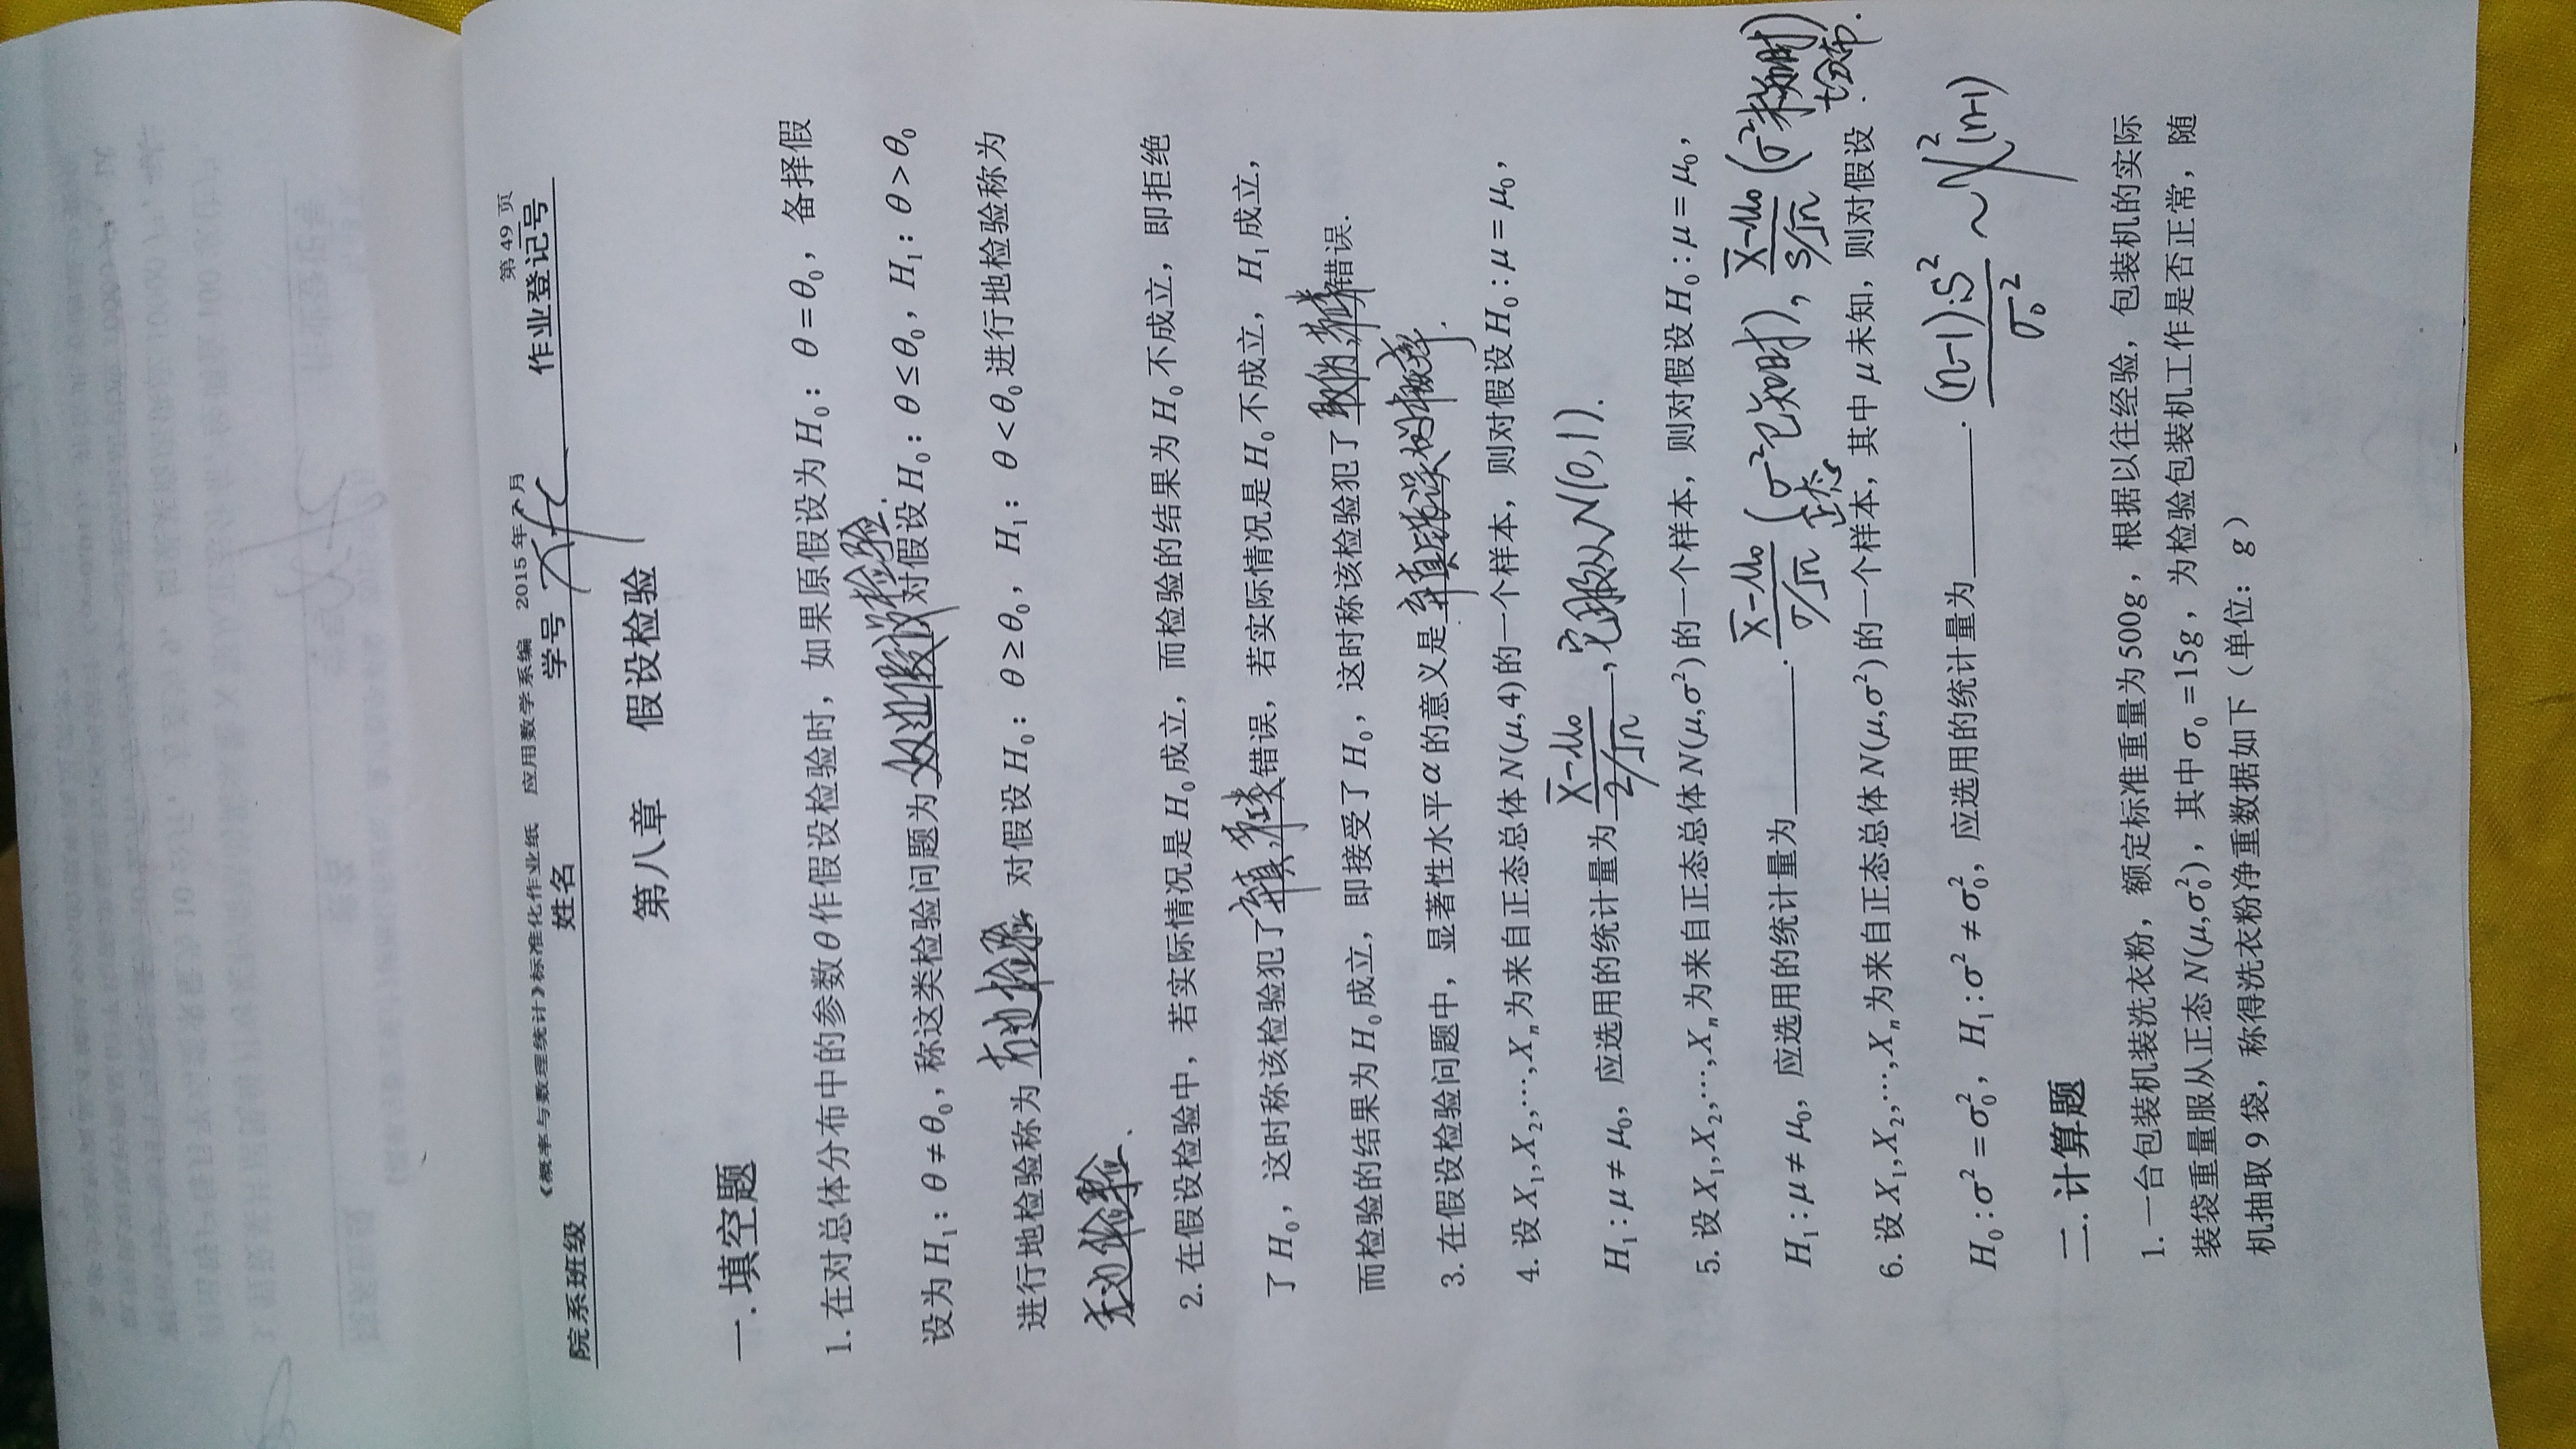 《概率与数理统计》标准化作业纸 应用数学系编 2015 年 7 月 第 49 页
院系班级 姓名 学号 作业登记号
第八章 假设检验
一. 填空题
1. 在对总体分布中的参数θ作假设检验时，如果原假设为 H₀：θ = θ₀，备择假
设为 H₁：θ ≠ θ₀，称这类检验问题为 双边假设检验. 对假设 H₀：θ ≤ θ₀，H₁：θ > θ₀
进行地检验称为 右边检验. 对假设 H₀：θ ≥ θ₀，H₁：θ < θ₀ 进行地检验称为
左边检验.
2. 在假设检验中，若实际情况是 H₀ 成立，而检验的结果为 H₀ 不成立，即拒绝
了 H₀，这时称该检验犯了 弃真,第I类 错误，若实际情况是 H₀ 不成立，H₁ 成立，
而检验的结果为 H₀ 成立，即接受了 H₀，这时称该检验犯了 取伪,第II类 错误.
3. 在假设检验问题中，显著性水平α的意义是 弃真错误的概率.
4. 设 X₁,X₂,⋯,Xₙ 为来自正态总体 N(μ,4) 的一个样本，则对假设 H₀ : μ = μ₀，
H₁ : μ ≠ μ₀，应选用的统计量为 (X̄-μ₀)/(2/√n) , 它服从N(0,1).
5. 设 X₁,X₂,⋯,Xₙ 为来自正态总体 N(μ,σ²) 的一个样本，则对假设 H₀ : μ = μ₀，
H₁ : μ ≠ μ₀，应选用的统计量为________. (X̄-μ₀)/(σ/√n) (σ²已知时), (X̄-μ₀)/(S/√n) (σ²未知时)
正态 t分布.
6. 设 X₁,X₂,⋯,Xₙ 为来自正态总体 N(μ,σ²) 的一个样本，其中 μ 未知，则对假设
H₀ : σ² = σ₀²，H₁ : σ² ≠ σ₀²，应选用的统计量为________. (n-1)·S²/σ₀² ~ χ²(n-1)
二. 计算题
1. 一台包装机装洗衣粉，额定标准重量为 500g，根据以往经验，包装机的实际
装袋重量服从正态 N(μ,σ₀²)，其中 σ₀ = 15g，为检验包装机工作是否正常，随
机抽取 9 袋，称得洗衣粉净重数据如下（单位：g）